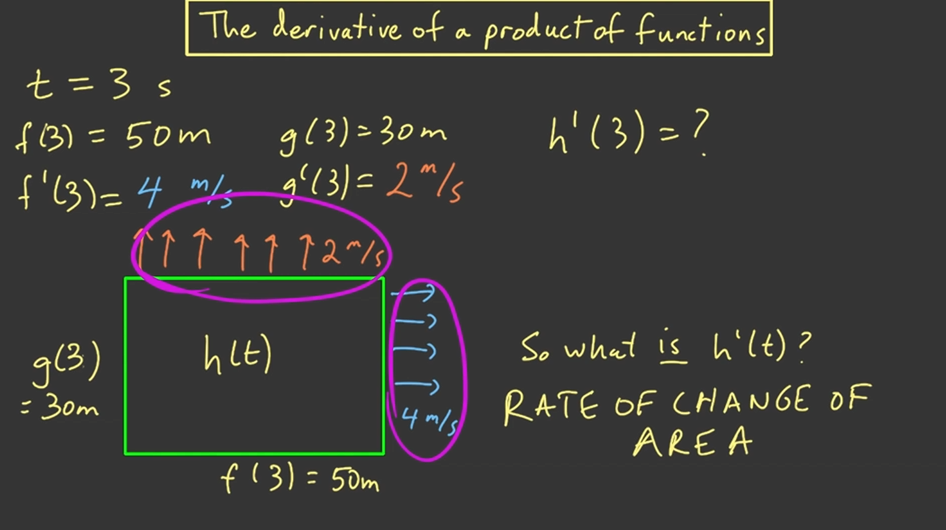 The derivative of a product of functions
t = 3 s
f(3) = 50m
g(3) = 30m
h'(3) = ?
f'(3) = 4 m/s
g'(3) = 2 m/s
2 m/s
h(t)
g(3)
= 30m
4 m/s
f(3) = 50m
So what is h'(t)?
RATE OF CHANGE OF
AREA